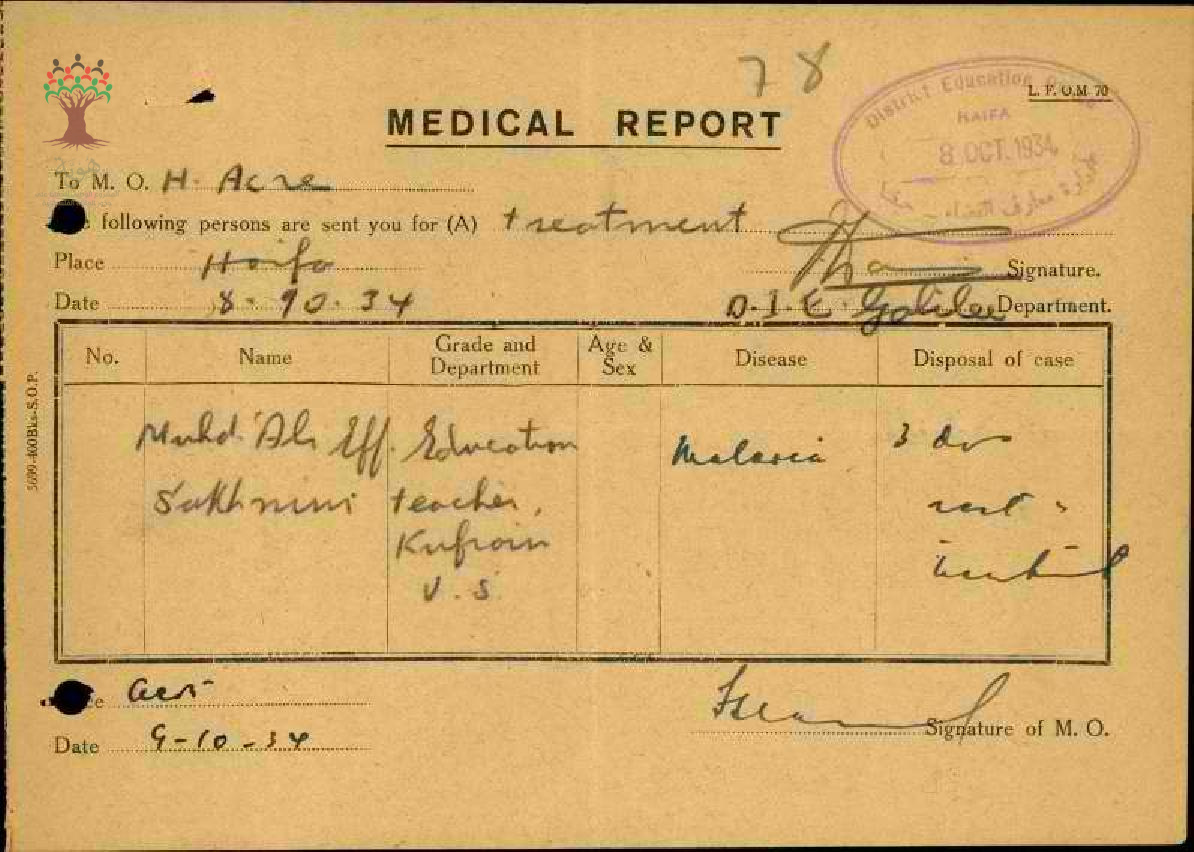 78
L. F. O.M. 70
District Education Office
HAIFA
8 OCT. 1934
MEDICAL REPORT
To M. O. H. Acre
following persons are sent you for (A) treatment
Place Haifa
Signature.
Date 8.10.34
D.I.E. Galilee Department.
No. Name Grade and Department Age & Sex Disease Disposal of case
Muhd. 'Ali Eff. Education Malaria 3 days
Sakhnini teacher, rest
V. S.
5699-400Bks-S.O.P.
Acre
Signature of M. O.
Date 9-10-34